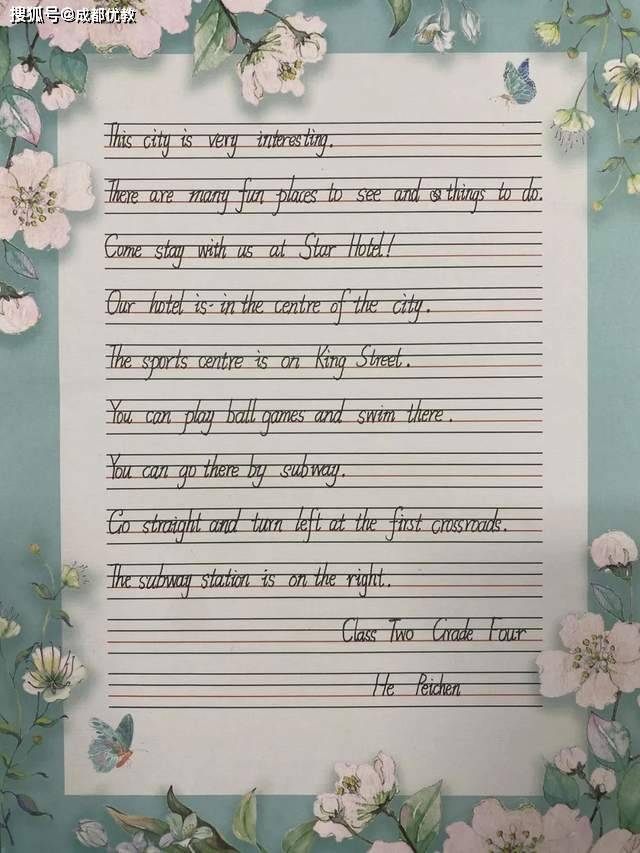 搜狐号@成都优教
This city is very interesting.
There are many fun places to see and things to do.
Come stay with us at Star Hotel!
Our hotel is in the centre of the city.
The sports centre is on King Street.
You can play ball games and swim there.
You can go there by subway.
Go straight and turn left at the first crossroads.
The subway station is on the right.
Class Two Grade Four
He Peichen